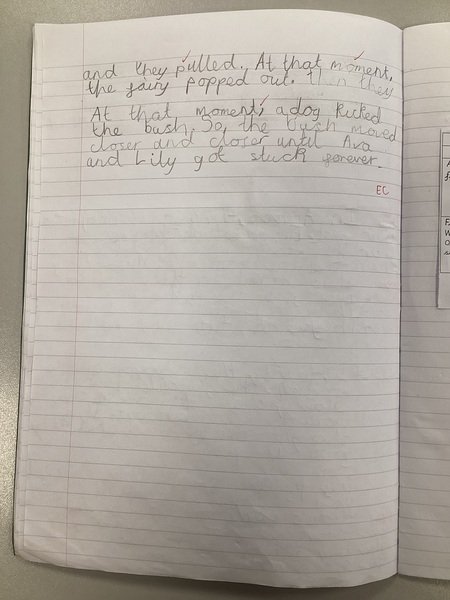 and they pulled. At that moment,
the fairy popped out. Then they
At that moment, a dog kicked
the bush. So, the bush moved
closer and closer until Ava
and Lily got stuck forever.
EC